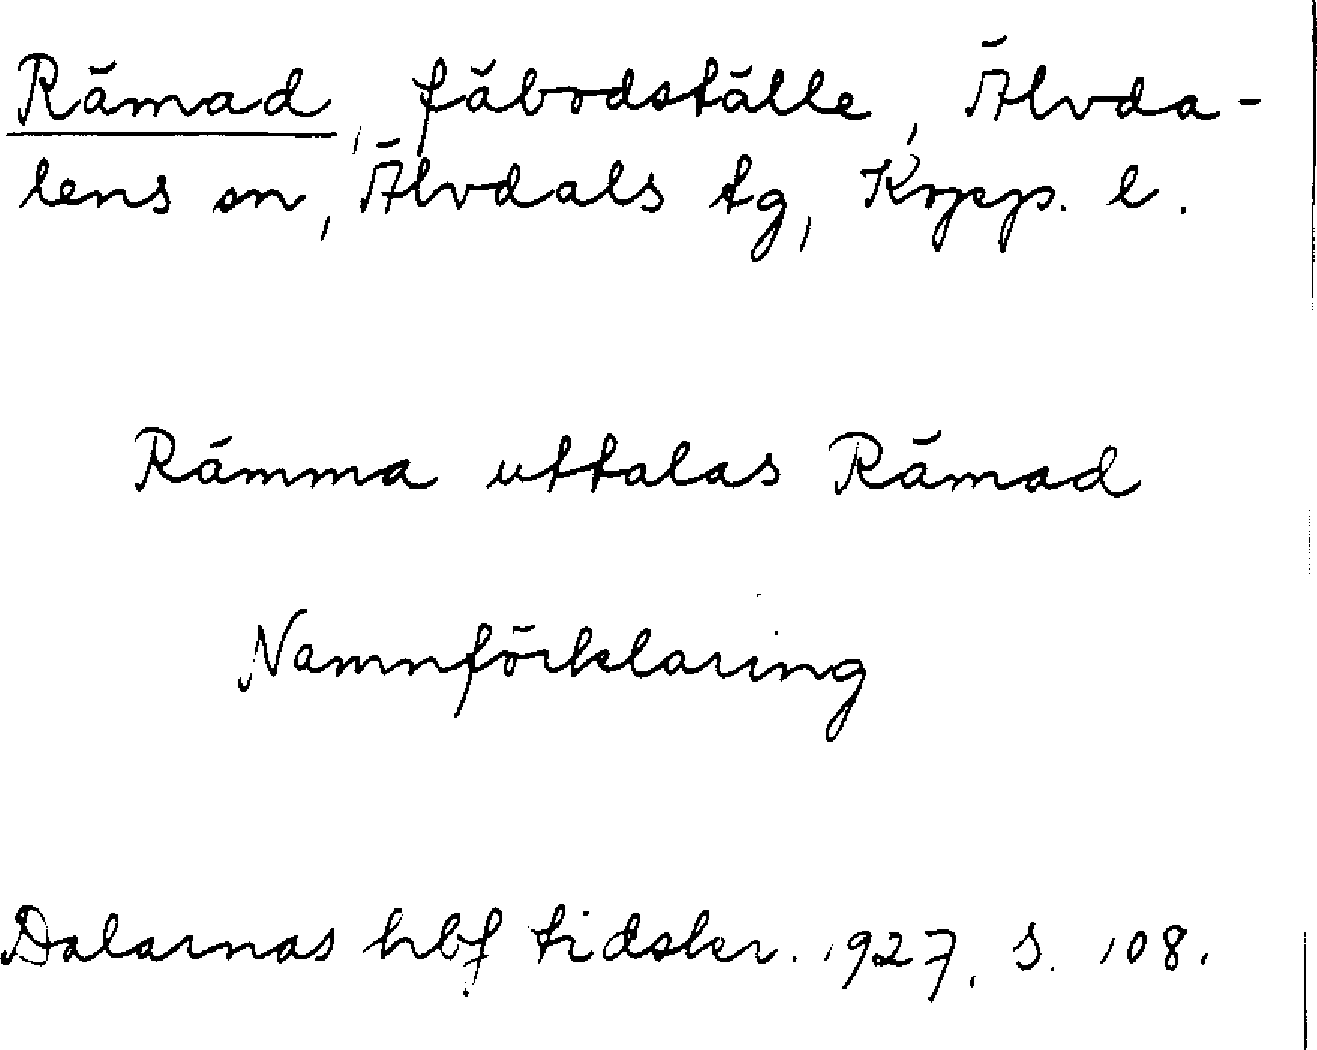 Rämad, fäbodställe, Älvda-
lens sn, Älvdals tg, Kopp. l.
Rämma uttalas Rämad
Namnförklaring
Dalarnas hbf tidskr. 1927, s. 108.